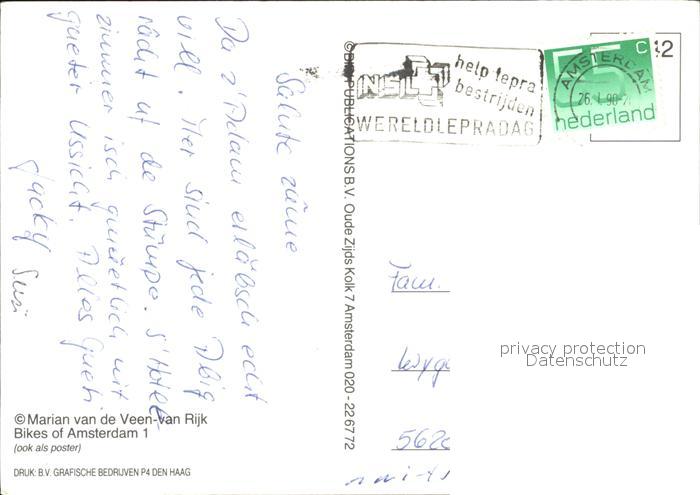 Salute zäme
Da z'Adam erläbsch echt
vill. Mer sind jede Abig
rächt uf de Stümpe. S'Hotel-
zimmer isch gmüetlich mit
gueter Ussicht. Alles Gueti
Jacky Susi
© Marian van de Veen-van Rijk
Bikes of Amsterdam 1
(ook als poster)
DRUK: B.V. GRAFISCHE BEDRIJVEN P4 DEN HAAG
PUBLICATIONS B.V. Oude Zijds Kolk 7 Amsterdam 020 - 22 67 72
NSL
help lepra
bestrijden
WERELDLEPRADAG
AMSTERDAM
26.1.90
55 c
nederland
2
Fam.
Wyg
562
privacy protection
Datenschutz